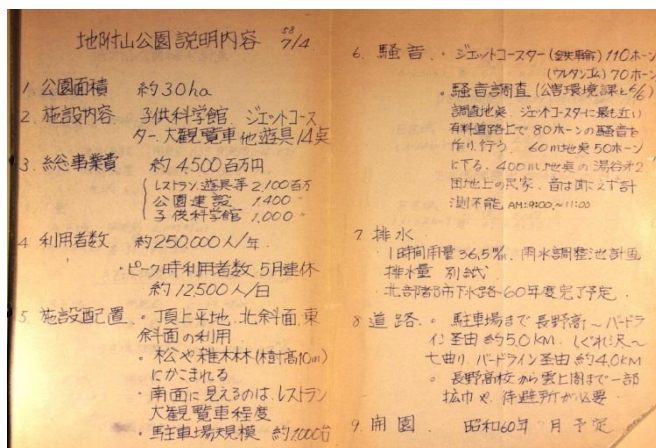 地附山公園説明内容 58 7/4
1. 公園面積 約30ha
2. 施設内容 子供科学館、ジェットコース
ター、大観覧車他遊具14点
3. 総事業費 約4500百万円
レストラン、遊具等 2,100百万
公園建設 1,400 〃
子供科学館 1,000 〃
4. 利用者数 約250,000人/年.
・ピーク時利用者数 5月連休
約12500人/日
5. 施設配置 ・頂上平地、北斜面、東
斜面の利用
・松や雑木林(樹高10m)
にかこまれる
・南面に見えるのは、レストラン
大観覧車程度
・駐車場規模 約1000台
6. 騒音 ・ジェットコースター(鉄車輪)110ホーン
(ウレタンゴム)70ホーン
・騒音調査(公害環境課と5/6)
調査地点、ジェットコースターに最も近い
有料道路上で80ホーンの騒音を
作り、行う。60m地点50ホーン
に下る。400m地点の湯谷オ2
団地上の民家、音は聞えず計
測不能 AM:9:00,~11:00
7. 排水
・1時間雨量36.5㎜. 雨水調整池計画
排水量 別紙
・北部都市下水路-60年度完了予定.
8 道路 ・駐車場まで長野高~バードラ
イン経由約5.0KM. しぐれ沢~
七曲り、バードライン経由約4.0KM
・長野高校から雲上閣まで一部
拡巾や、待避所が必要
9. 開園 昭和60年 月予定